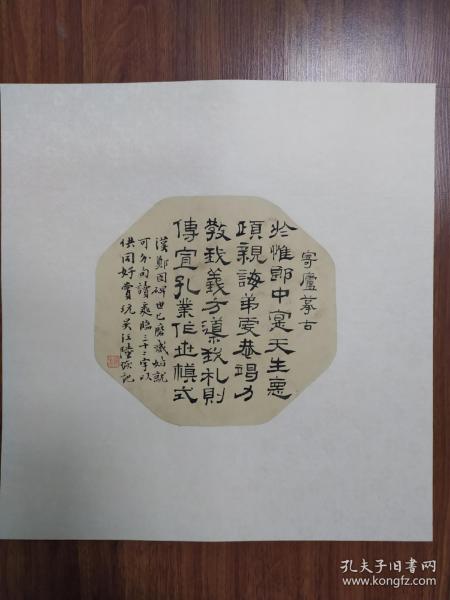 寄廬摹古
於惟郎中寔天生悳
頎親誨弟虔恭竭力
教我義方導我礼則
傳宣孔業作世模式
漢鄭固碑世已磨滅就
可分句讀處臨三十二字以
供同好賞玩吳江陸恢記
孔夫子旧书网
www.kongfz.com